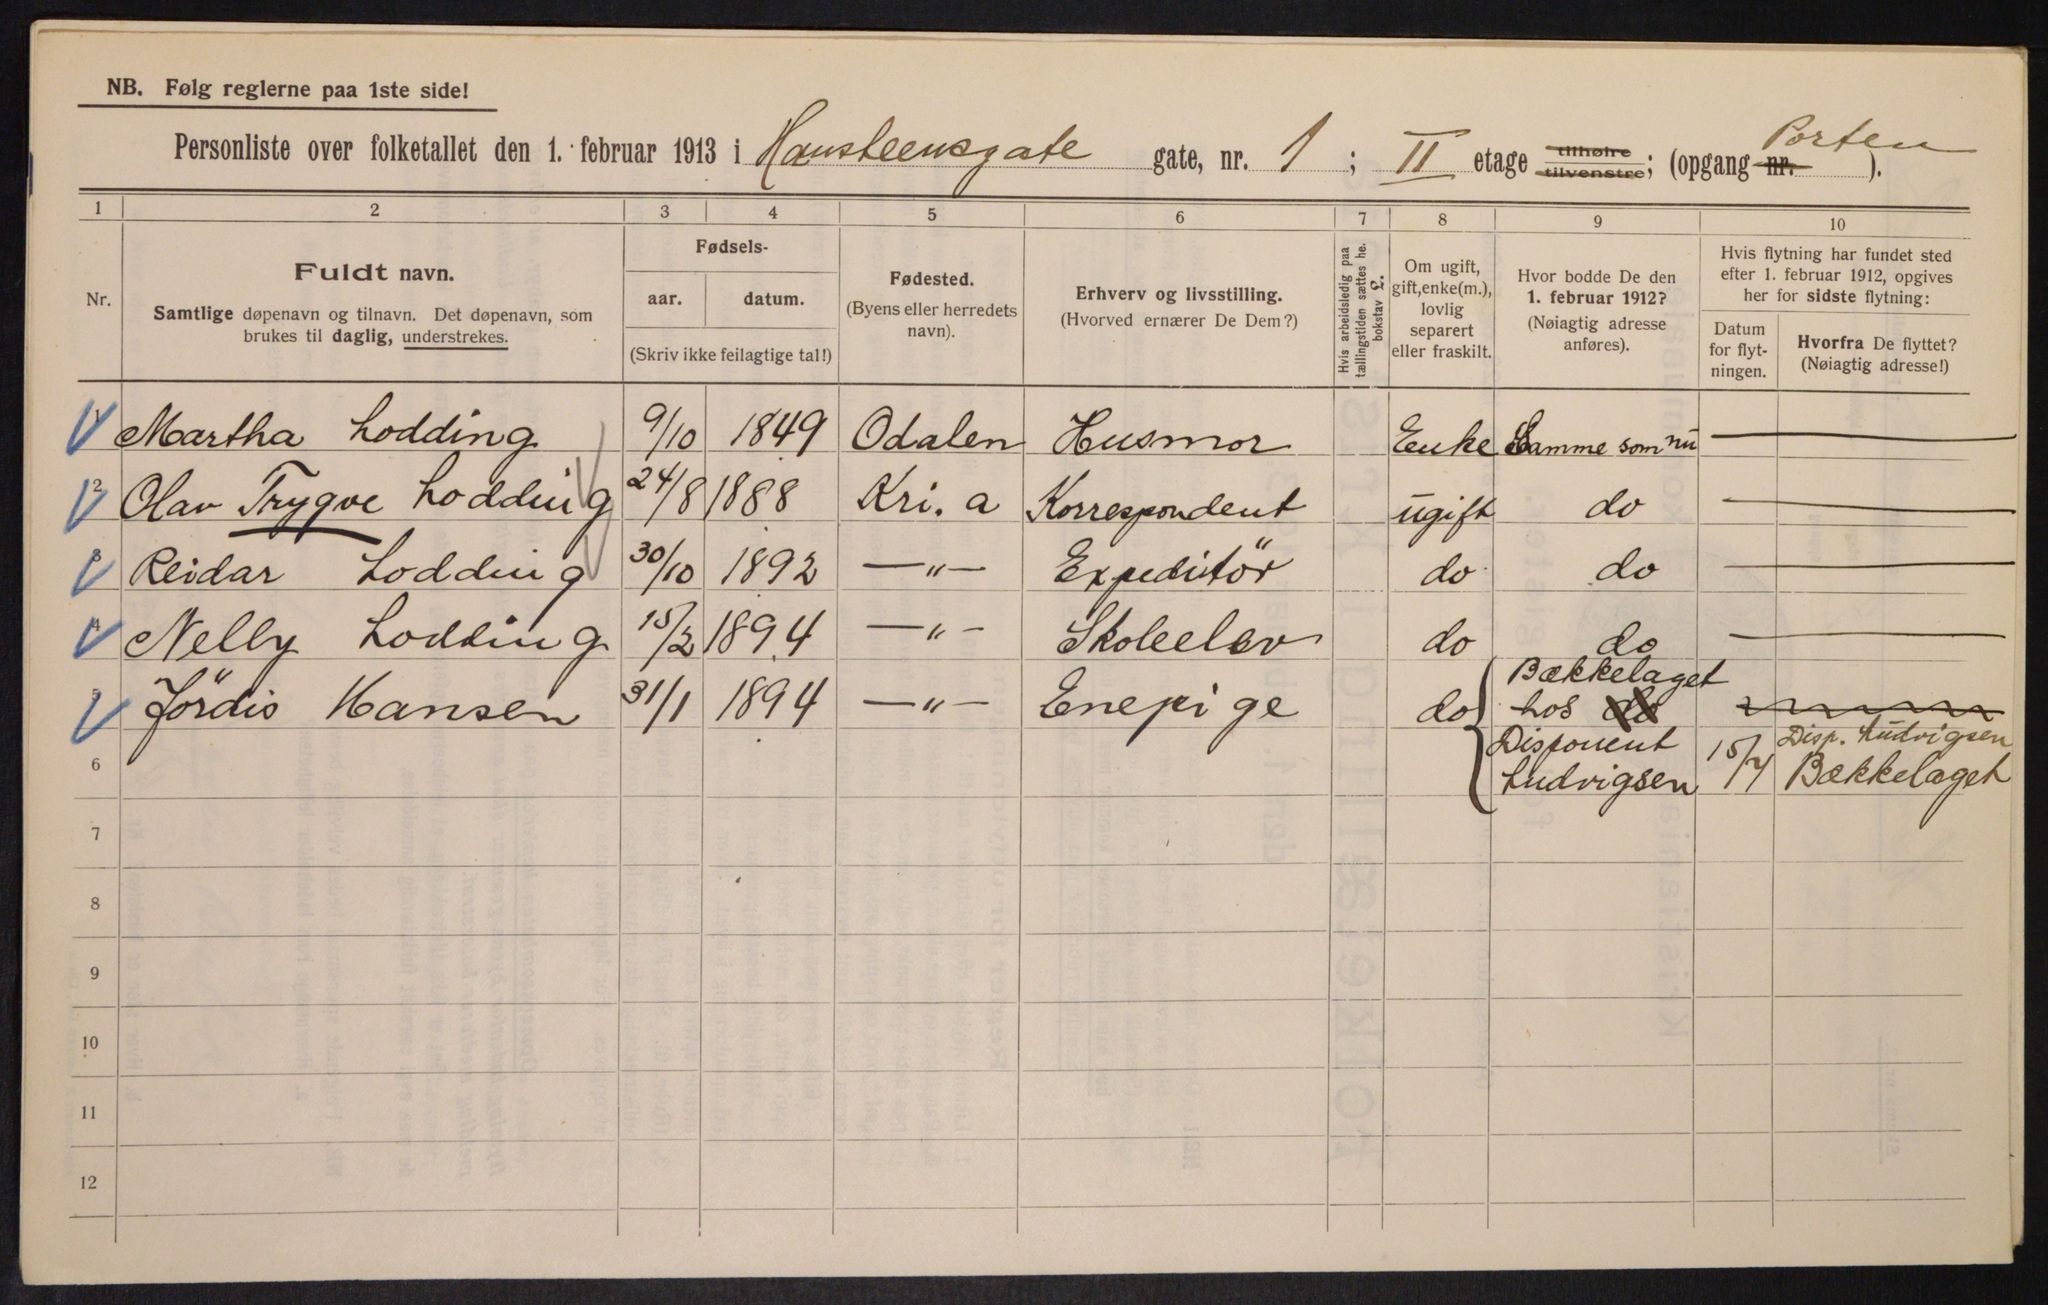 NB. Følg reglerne paa 1ste side!
Personliste over folketallet den 1. februar 1913 i Hansteensgate gate, nr. 1 ; II etage tilhøire tilvenstre ; (opgang nr. Porten ).
1 2 3 4 5 6 7 8 9 10
Nr.
Fuldt navn.
Samtlige døpenavn og tilnavn. Det døpenavn, som
brukes til daglig, understrekes.
Fødsels-
aar. datum.
(Skriv ikke feilagtige tal!)
Fødested.
(Byens eller herredets
navn).
Erhverv og livsstilling.
(Hvorved ernærer De Dem?)
Hvis arbeidsledig paa
tællingstiden sættes he.
bokstav L.
Om ugift,
gift, enke(m.),
lovlig
separert
eller fraskilt.
Hvor bodde De den
1. februar 1912?
(Nøiagtig adresse
anføres).
Hvis flytning har fundet sted
efter 1. februar 1912, opgives
her for sidste flytning:
Datum
for flyt-
ningen.
Hvorfra De flyttet?
(Nøiagtig adresse!)
1 Martha Lodding 9/10 1849 Odalen Husmor Enke Samme som nu —
2 Olav Trygve Lodding 24/8 1888 Kri.a Korrespondent ugift do —
3 Reidar Lodding 30/10 1892 —"— Expeditör do do —
4 Nelly Lodding 15/2 1894 —"— Skoleelev do do —
5 Jördis Hansen 31/1 1894 —"— Enepige do
Bækkelaget
hos do
Disponent
Ludvigsen
15/4
Disp. Ludvigsen
Bækkelaget
6
7
8
9
10
11
12